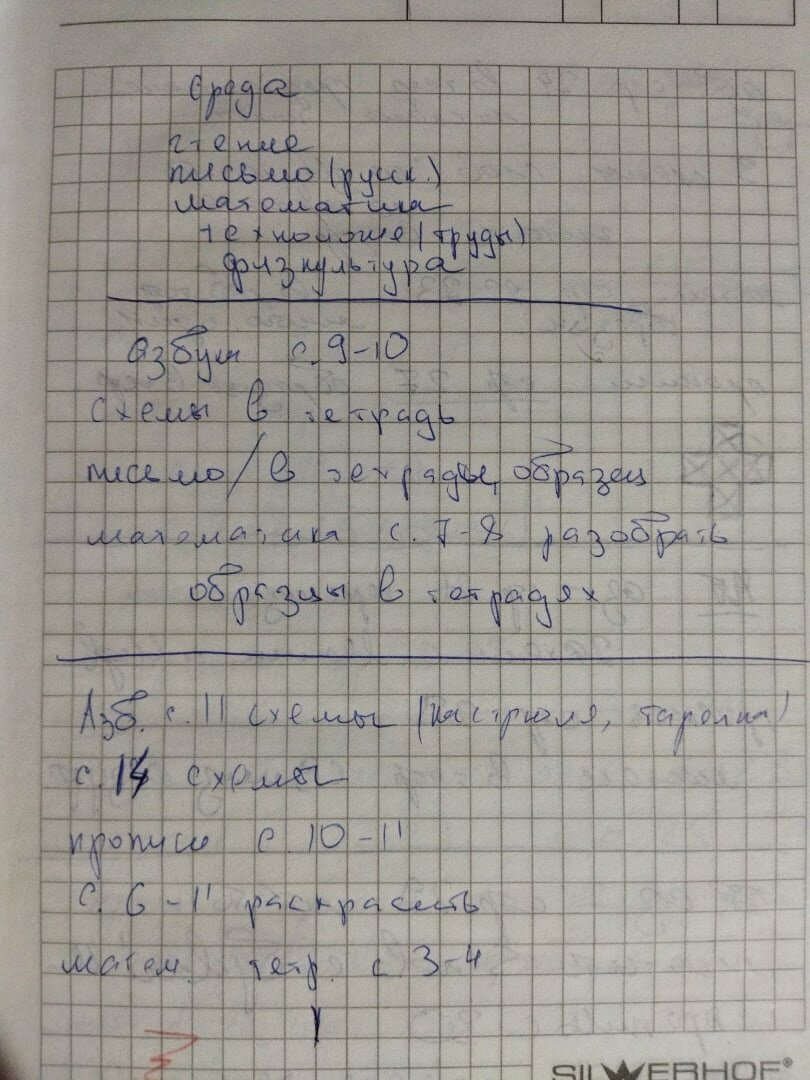 Среда
чтение
письмо (русск.)
математика
технология (труды)
физкультура
Азбука с. 9-10
схемы в тетрадь
письмо/в тетрадь, образец
математика с. 7-8 разобрать
образцы в тетрадях
Азб. с. 11 схемы (кастрюля, тарелка)
с. 14 схемы
прописи с. 10-11
с. 6-11 раскрасить
матем. тетр. с. 3-4
SILWERHOF®